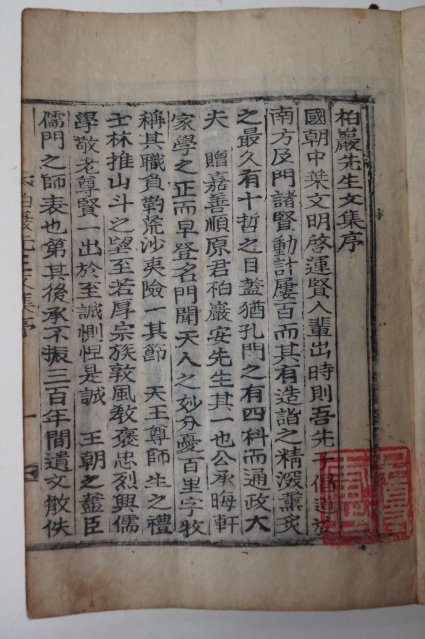 柏巖先生文集序
國朝中葉文明啓運賢人輩出時則吾先子倡道
南方及門諸賢動計屢百而其有造詣之精深薰炙
之最久有十哲之目蓋猶孔門之有四科而通政大
夫 贈嘉善順原君柏巖安先生其一也公承晦軒
家學之正而早登名門聞天人之妙分憂百里字牧
稱其職負羈荒沙夷險一其節 天王尊師生之禮
士林推山斗之望至若厚宗族敦風教褒忠烈興儒
學敬老尊賢一出於至誠惻怛是誠 王朝之藎臣
儒門之師表也第其後承不振三百年間遺文散佚
柏巖先生文集序 一